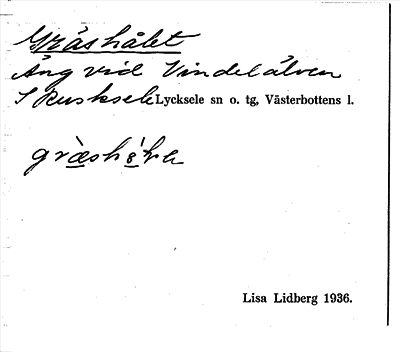 Gräshålet
Äng vid Vindelälven
I Rusksele Lycksele sn o. tg, Västerbottens l.
Lisa Lidberg 1936.